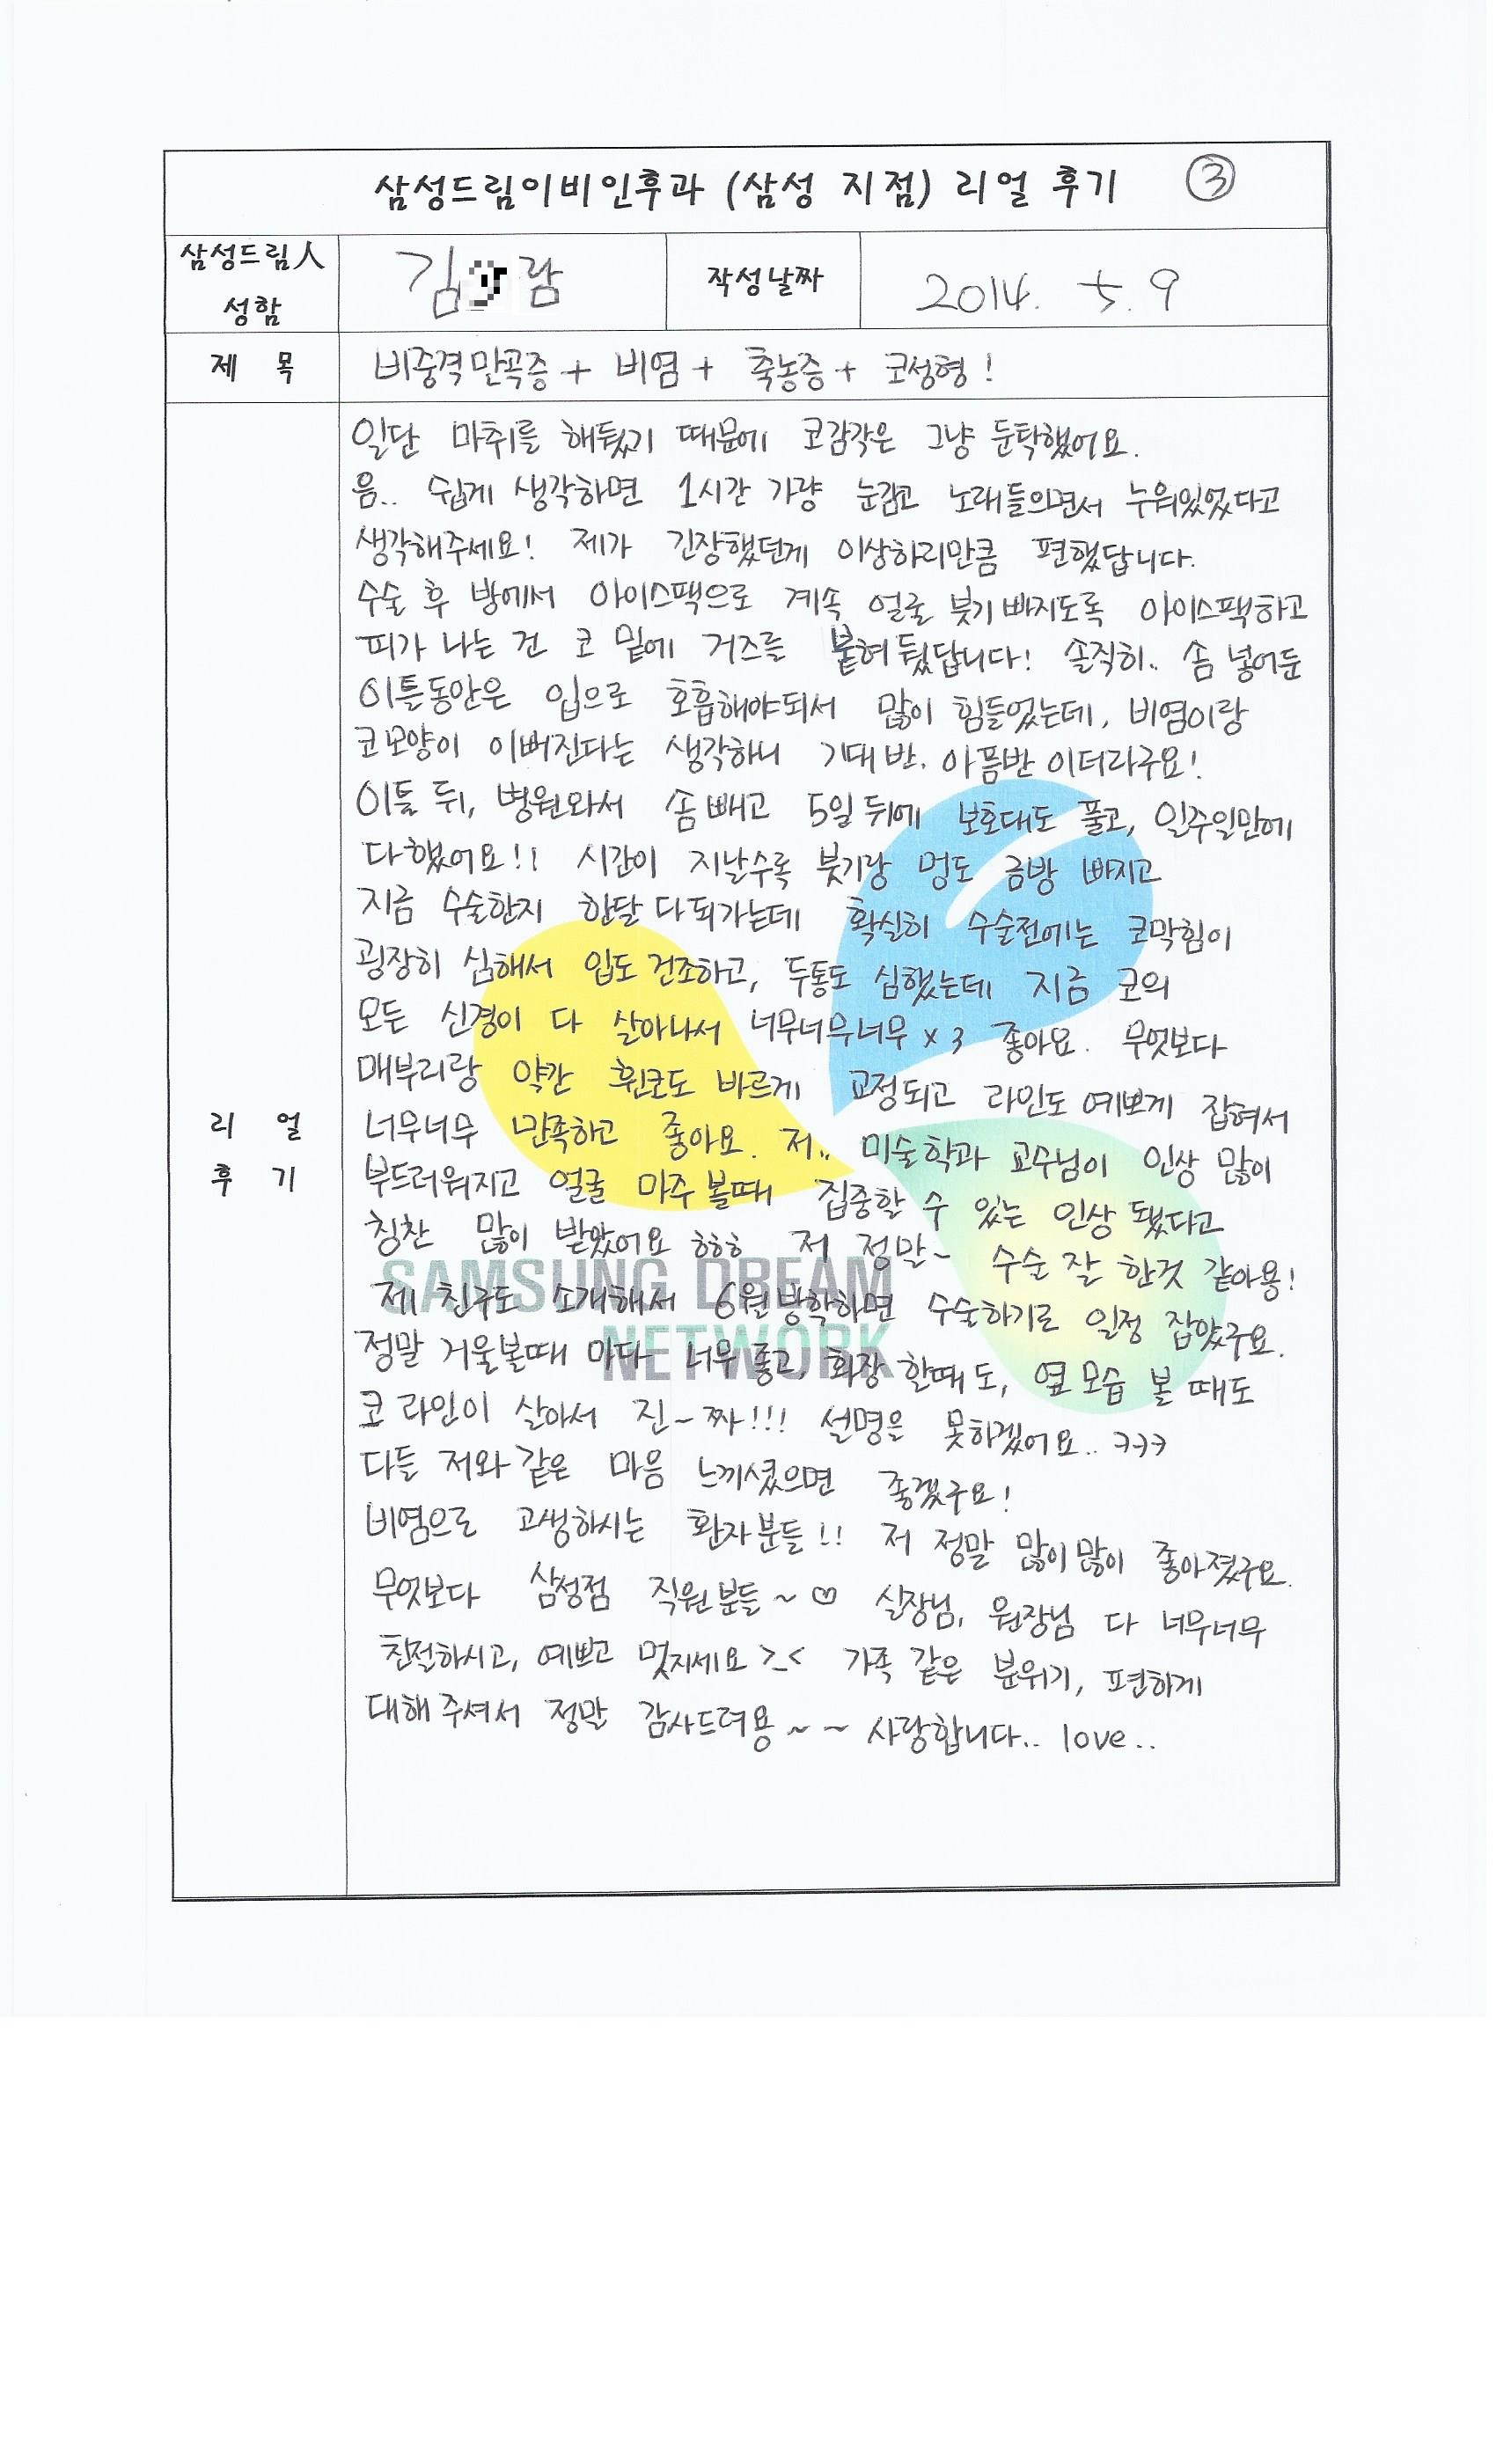 삼성드림이비인후과 (삼성 지점) 리얼 후기 ③
삼성드림人
성함
김 람
작성날짜
2014. 5. 9
제 목
비중격만곡증 + 비염 + 축농증 + 코성형!
일단 마취를 해뒀기 때문에 코감각은 그냥 둔탁했어요.
음.. 쉽게 생각하면 1시간 가량 눈감고 노래들으면서 누워있었다고
생각해주세요! 제가 긴장했던게 이상하리만큼 편했답니다.
수술 후 방에서 아이스팩으로 계속 얼굴 붓기 빠지도록 아이스팩하고
피가 나는 건 코 밑에 거즈를 붙혀뒀답니다! 솔직히.. 솜 넣어둔
이틀동안은 입으로 호흡해야되서 많이 힘들었는데, 비염이랑
코모양이 이뻐진다는 생각하니 기대반. 아픔반 이더라구요!
이틀 뒤, 병원와서 솜 빼고 5일 뒤에 보호대도 풀고, 일주일만에
다했어요!! 시간이 지날수록 붓기랑 멍도 금방 빠지고
지금 수술한지 한달 다되가는데 확실히 수술전에는 코막힘이
굉장히 심해서 입도 건조하고, 두통도 심했는데 지금 코의
모든 신경이 다 살아나서 너무너무너무 x 3 좋아요. 무엇보다
매부리랑 약간 휜코도 바르게 교정되고 라인도 예쁘게 잡혀서
리 얼
후 기
너무너무 만족하고 좋아요. 저.. 미술학과 교수님이 인상 많이
부드러워지고 얼굴 마주 볼때 집중할 수 있는 인상 됐다고
칭찬 많이 받았어요 ㅎㅎㅎ 저 정말~ 수술 잘 한것 같아용!
제 친구도 소개해서 6월 방학하면 수술하기로 일정 잡았구요.
정말 거울볼때 마다 너무 좋고, 화장 할때도, 옆모습 볼 때도
코 라인이 살아서 진~짜!!! 설명을 못하겠어요.. ㅋㅋㅋ
다들 저와 같은 마음 느끼셨으면 좋겠구요!
비염으로 고생하시는 환자분들!! 저 정말 많이많이 좋아졌구요.
무엇보다 삼성점 직원분들~♡ 실장님, 원장님 다 너무너무
친절하시고, 예쁘고 멋지세요 >_< 가족 같은 분위기, 편하게
대해 주셔서 정말 감사드려용~~ 사랑합니다.. love..
SAMSUNG DREAM
NETWORK